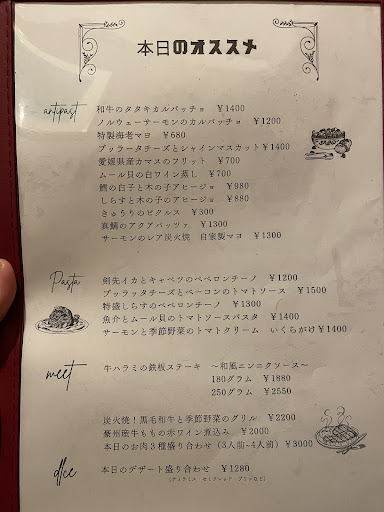 本日のオススメ
antipast
和牛のタタキカルパッチョ ¥1400
ノルウェーサーモンのカルパッチョ ¥1200
特製海老マヨ ¥680
ブッラータチーズとシャインマスカット¥1400
愛媛県産カマスのフリット ¥700
ムール貝の白ワイン蒸し ¥700
鱈の白子と木の子アヒージョ ¥980
しらすと木の子のアヒージョ ¥880
きゅうりのピクルス ¥300
真鯛のアクアパッツァ ¥1300
サーモンのレア炭火焼 自家製マヨ ¥1300
Pasta
剣先イカとキャベツのペペロンチーノ ¥1200
ブッラッタチーズとベーコンのトマトソース ¥1500
特盛しらすのペペロンチーノ ¥1300
魚介とムール貝のトマトソースパスタ ¥1400
サーモンと季節野菜のトマトクリーム いくらがけ¥1400
meet
牛ハラミの鉄板ステーキ ~和風ニンニクソース~
180グラム ¥1880
250グラム ¥2550
炭火焼!黒毛和牛と季節野菜のグリル ¥2200
豪州産牛ももの赤ワイン煮込み ¥2000
本日のお肉3種盛り合わせ(3人前~4人前)¥3000
dlce
本日のデザート盛り合わせ ¥1280